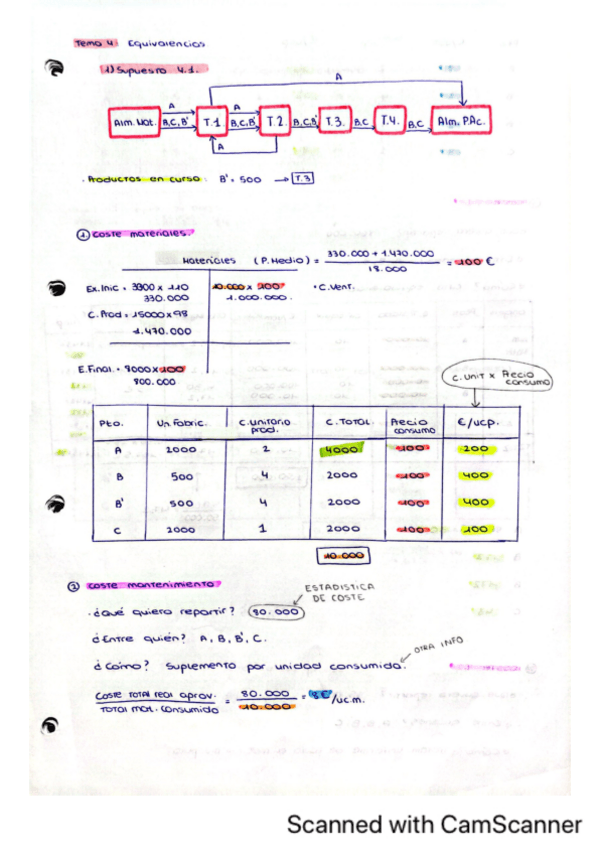 Tema 4 Equivalencias
1) Supuesto 4.1.
A
A
A
Alm. Mat.
B,C,B'
T.1
B,C,B'
T.2
B,C,B'
T.3.
B,C
T.4.
B,C
Alm. P.Ac.
A
· Productos en curso: B' = 500 → T.3
① Coste materiales.
Materiales (P. Medio) = 330.000 + 1.470.000 / 18.000 = 100 €
Ex. Inic = 3000 x 110
330.000
10.000 x 100
1.000.000.
· C. Vent.
C. Prod = 15000 x 98
1.470.000
E. Final. = 8000 x 100
800.000
C. UNIT x Precio consumo
Pto. Un. Fabric. C. Unitario prod. C. TOTAL. Precio consumo €/ucp.
A 2000 2 4000 100 200
B 500 4 2000 100 400
B' 500 4 2000 100 400
C 2000 1 2000 100 100
10.000
② Coste mantenimiento?
ESTADISTICA DE COSTE
· ¿Qué quiero repartir? 80.000
¿Entre quién? A, B, B', C.
OTRA INFO
¿Cómo? Suplemento por unidad consumida.
Coste total real aprov. / Total mat. consumido = 80.000 / 10.000 = 8€/u.c.m.
Scanned with CamScanner